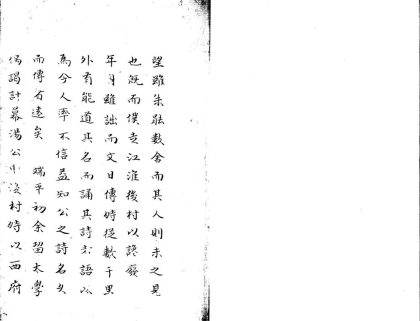 望雖朱敲數舍而其人則未之見
也既而僕走江淮後村以讒廢
年月雖詘而文日傳時從數千里
外有能道其名而誦其詩者語以
為今人率不信益知公之詩名久
而傳者遠矣 端平初余習太學
偶謁計幕湯公巾後村時以西府